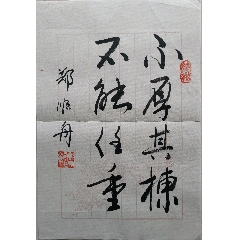 不厚其栋
不能任重
郑顺舟